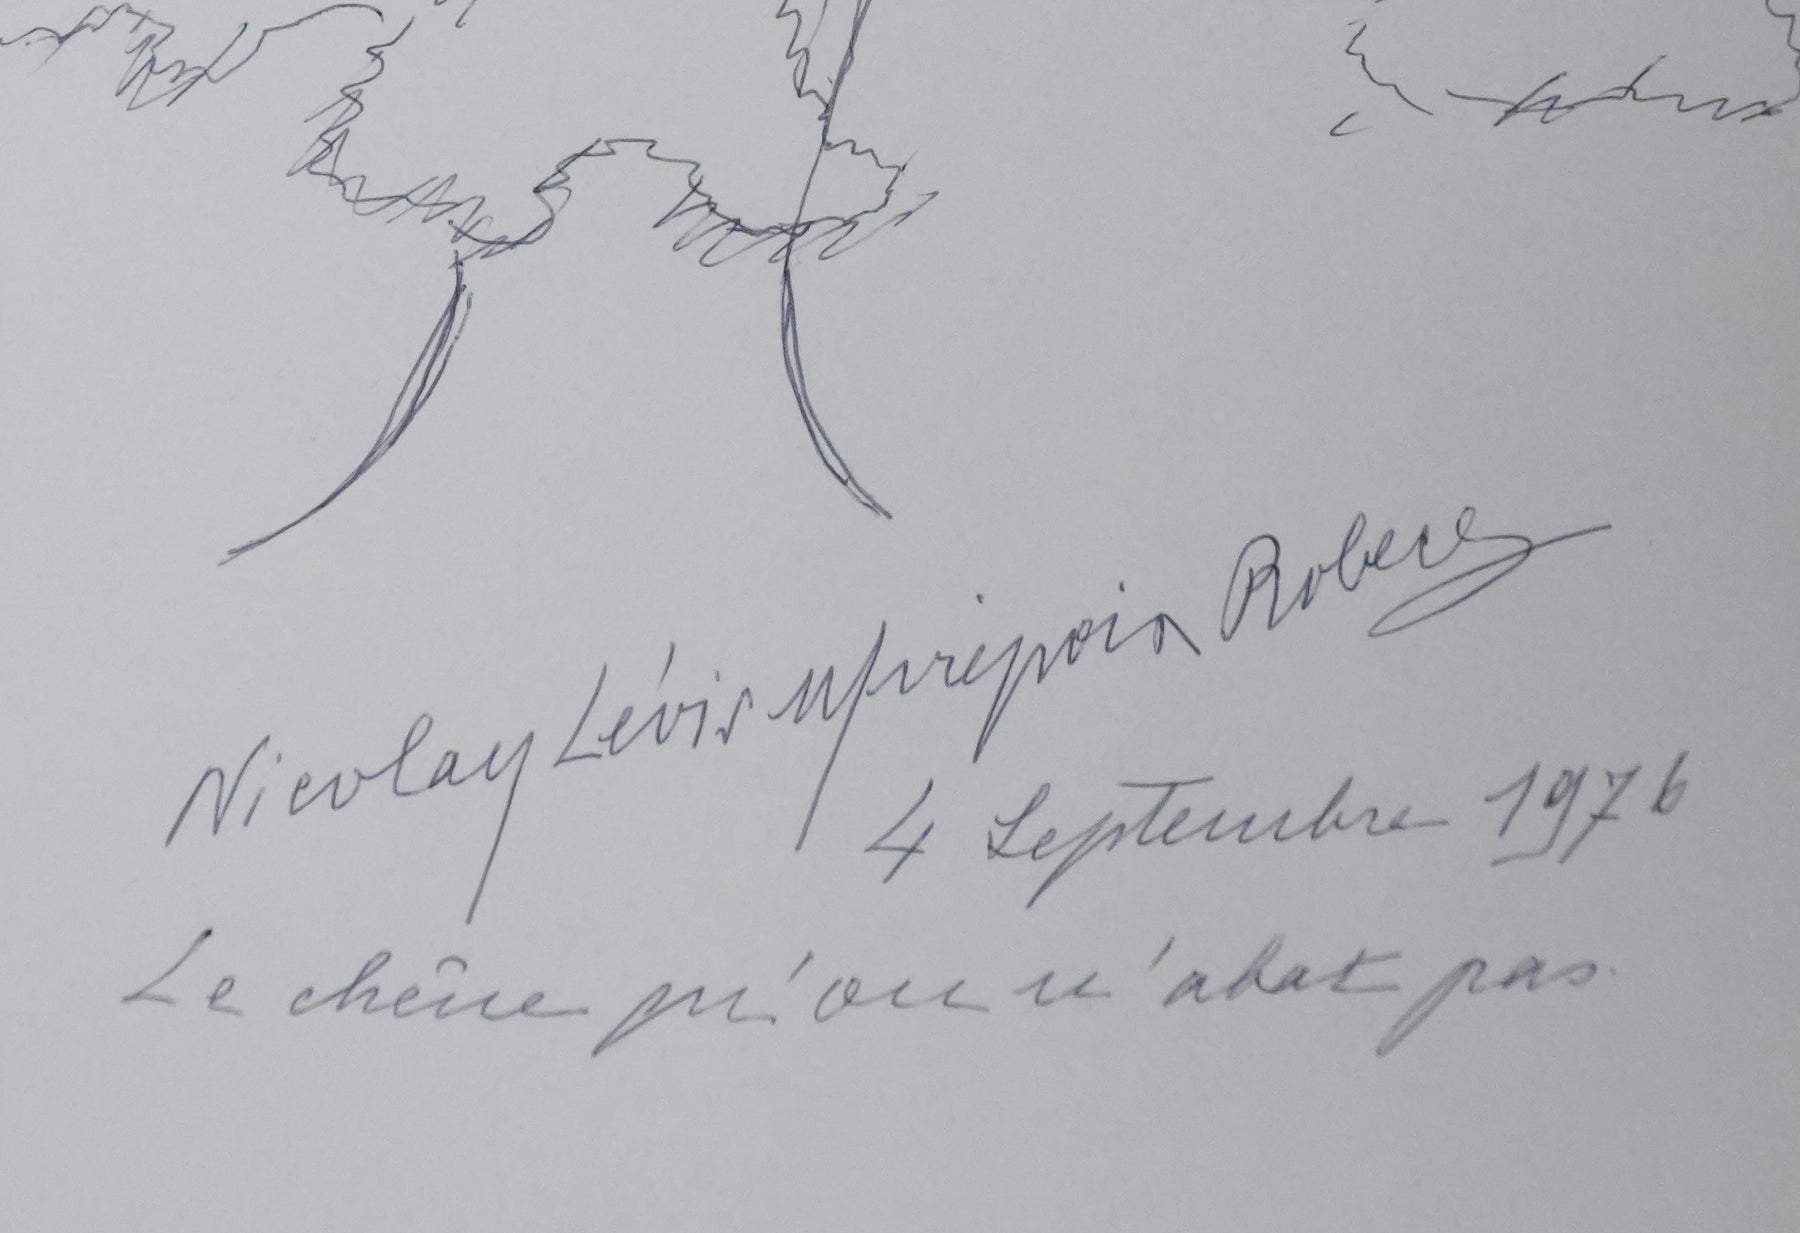 Nicolay Lévis Mprépoin Robert
4 Septembre 1976
Le chêne qu'on n'abat pas.